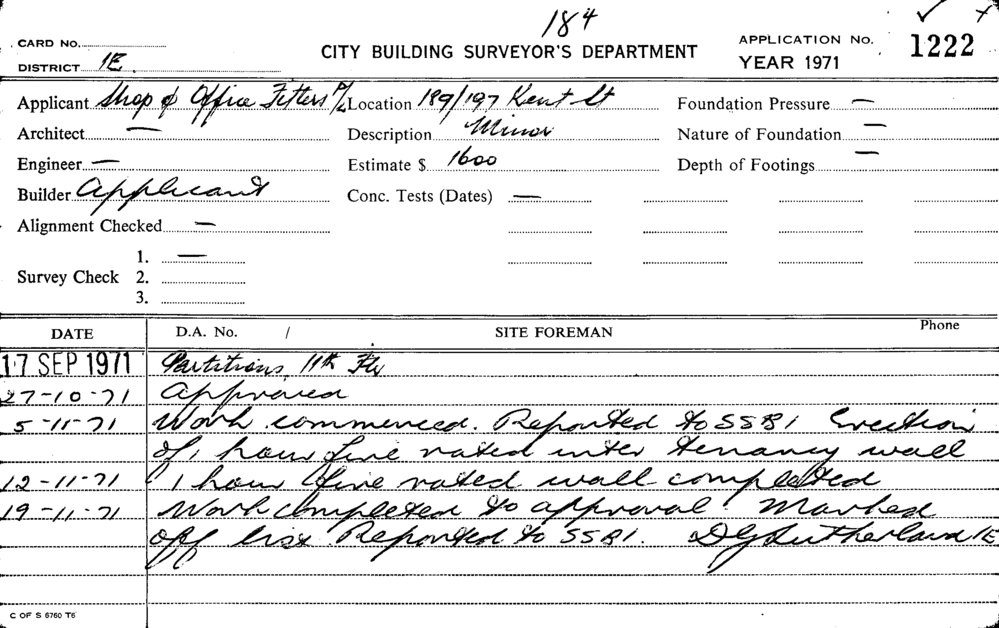 184
CARD NO.
DISTRICT 1E.
CITY BUILDING SURVEYOR'S DEPARTMENT
APPLICATION No. 1222
YEAR 1971
Applicant Shop & Office Fitters P/L Location 189/197 Kent St Foundation Pressure —
Architect — Description Minor Nature of Foundation —
Engineer — Estimate $ 1600 Depth of Footings —
Builder Applicant Conc. Tests (Dates) —
Alignment Checked —
Survey Check 1. —
2.
3.
DATE D.A. No. / SITE FOREMAN Phone
17 SEP 1971 Partitions, 11th Flr
27-10-71 Approved
5-11-71 Work commenced. Reported to SSB1 Erection
of 1 hour fire rated inter tenancy wall
12-11-71 1 hour fire rated wall completed
19-11-71 Work completed to approval. Marked
off list. Reported to SSB1. DG Sutherland 1E
C OF S 6760 T6